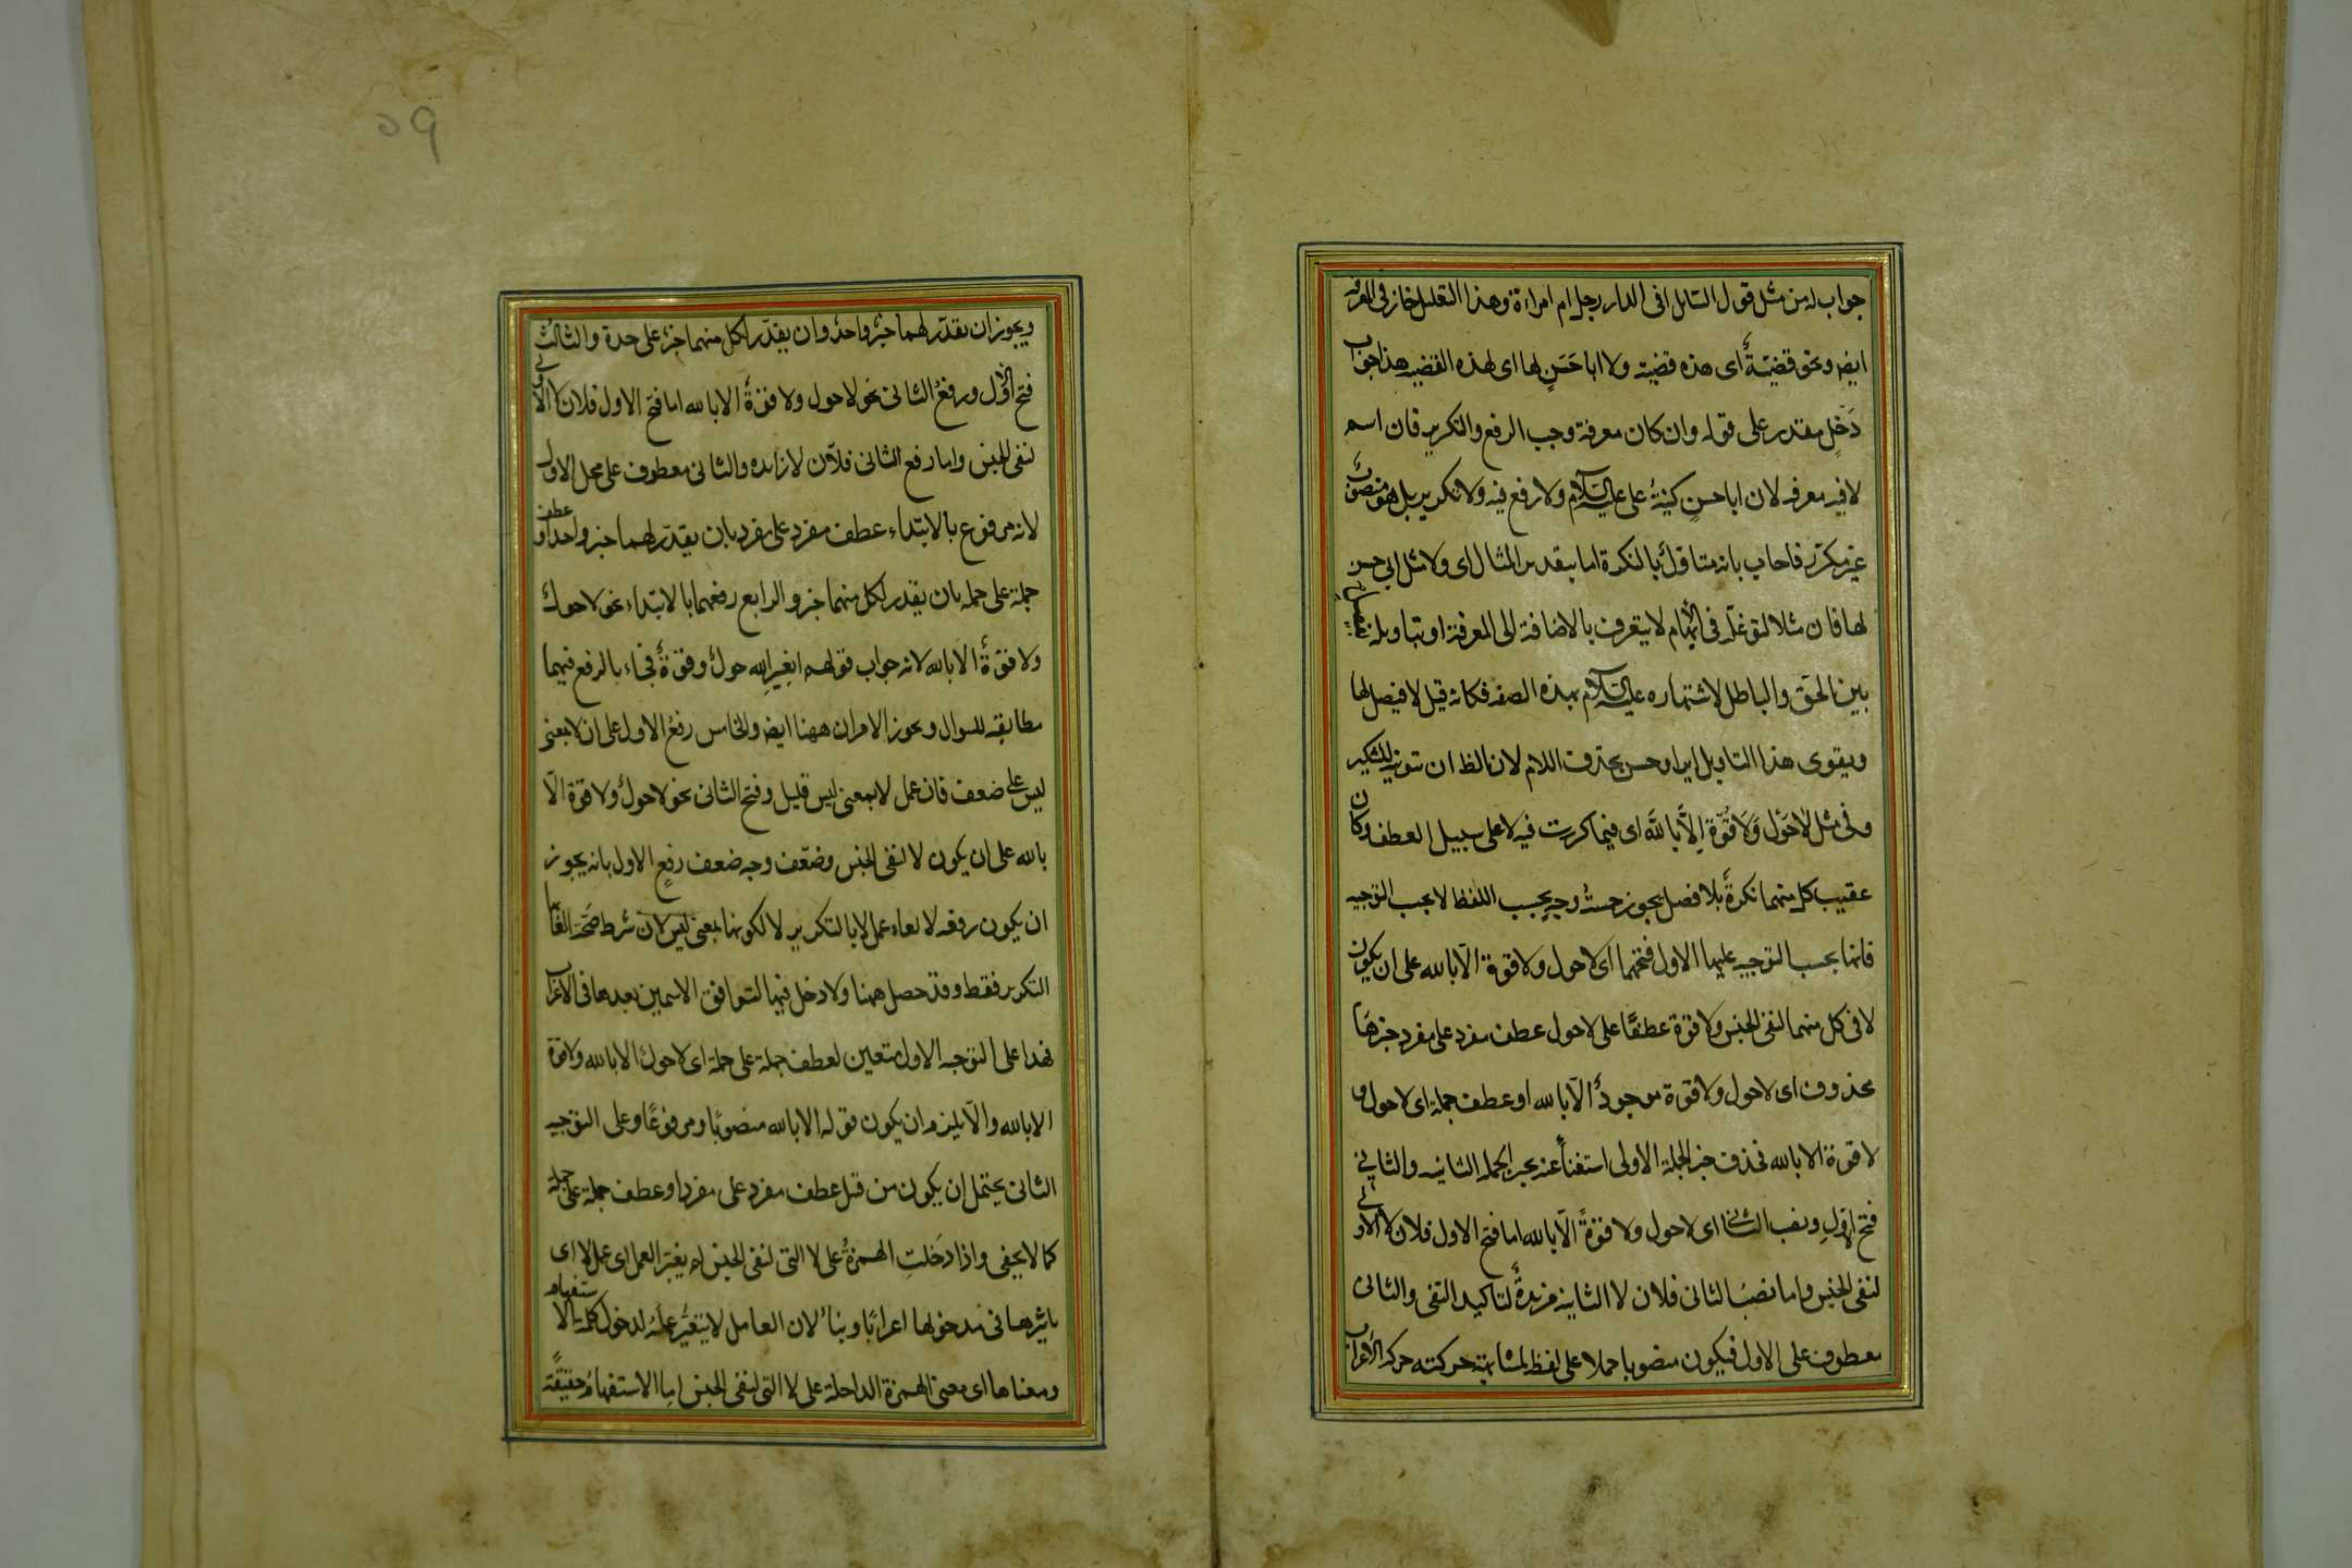 جواب لمن مثل قول السائل افى الدار رجل ام امراءة وهذا التعليل جاز فى المعرفه
ايض ونحو قضيّةٌ اى هذه قضية ولا ابا حَسَنٍ لها اى لهذه القضيه هذا جواب
دَخْلٍ مقدر على قوله وان كان معرفة وجب الرفع والتكرير فان اسم
لا فيه معرفه لان ابا حسنٍ كنيةُ على عليه السلام ولا رفع فيه ولا تكرير بل هو منصوبٌ
غير مكرّر فاجاب بانه متاوّلٌ بالنكرة اما بتقدير المثال اى ولا مثل ابى حسن
لها فان مثلا لتوغّله فى الابهام لا يتعرف بالاضافة الى المعرفة او بتاويله بفيصل
بين الحق والباطل لاشتهاره عليه السلام بهذه الصفه فكانه قيل لا فيصل لها
ويقوى هذا التاويل ايراد حسن بحذف اللام لان الظ ان تنوينه للتنكير
وفى مثل لا حَوْلَ وَلَا قُوّةَ اِلّا بالله اى فيما كررت فيه لا على سبيل العطف وكان
عقيب كل منهما نكرةً بلا فصل يجوز خمسةُ اوجهٍ بحسب اللفظ لا بحسب التوجيه
فانها بحسب التوجيه عليها الاول فتحهما اى لا حول ولا قوة الّا بالله على ان يكون
لا فى كل منهما لنفى الجنس ولا قوة عطفًا على لا حول عطف مفرد على مفرد خبرها
محذوف اى لا حول ولا قوة موجودٌ الّا بالله او عطف جملة اى لا حول و
لا قوة الا بالله فحذف خبر الجملة الاولى استغناً عنه بخبر الجملة الثانيه والثانى
فتح الاوّلِ ونصب الثانى اى لا حول ولا قوةً الّا بالله اما فتح الاول فلان لا الاولى
لنفى الجنس واما نصبُ الثانى فلان لا الثانية مزيدةٌ لتاكيد النفى والثانى
معطوف على الاول فيكون منصوبا حملا على لفظه لمشابهة حركته حركة الاعراب
٥٩
ويجوز ان يقدّر لهما خبرٌ واحدٌ وان يقدّر لكل منهما خبرٌ على حدة والثالثُ
فتح الاوّل ورفعُ الثانى نحو لا حول ولا قوةٌ الا بالله اما فتح الاول فلان لا الاولى
لنفى الجنس واما رفع الثانى فلآن لا زايده والثانى معطوف على محل الاول
لانه مرفوع بالابتداء عطف مفرد على مفرد بان يقدّر لهما خبر واحد او عطف
جملة على جمله بان يقدر لكل منهما خبر والرابع رفعهما بالابتداء نحو لا حولٌ
ولا قوّةٌ الا بالله لانه جواب قولهم ابغيرِ الله حولٌ وقوّةٌ فجاء بالرفع فيهما
مطابقه للسوال ويجوز الامران ههنا ايض والخامس رفعُ الاول على ان لا بمعنى
ليس على ضعف فان عمل لا بمعنى ليس قليل وفتح الثانى نحو لا حولٌ ولا قوة الّا
بالله على ان يكون لا لنفى الجنس وضعّف وجه ضعف رفعِ الاول بانه يجوز
ان يكون رفعه لالغاء عمل لا بالتكرير لا لكونها بمعنى ليس لان شرط صحّة الغائها
التكرير فقط وقد حصل ههنا ولا دخل فيها لتوافق الاسمين بعدها فى الاعراب
فهذا على التوجيه الاول متعين لعطف جملة على جملة اى لا حولٌ الا بالله ولا قوة
الا بالله والّا يلزم ان يكون قوله الا بالله منصوبًا ومرفوعًا وعلى التوجيه
الثانى يحتمل ان يكون من قبل عطف مفرد على مفرد او عطف جملة على جملة
كما لا يخفى واذا دَخلتِ الهمزةُ على لا التى لنفى الجنس لم يغيّر العمل اى عمل لا اى
تاثيرها فى مدخولها اعرابًا وبناءً لان العامل لا يتغيّر عمله لدخول كلمة الاستفهام
ومعناها اى معنى الهمزة الداخلة على لا التى لنفى الجنس اما الاستفهام حقيقةً